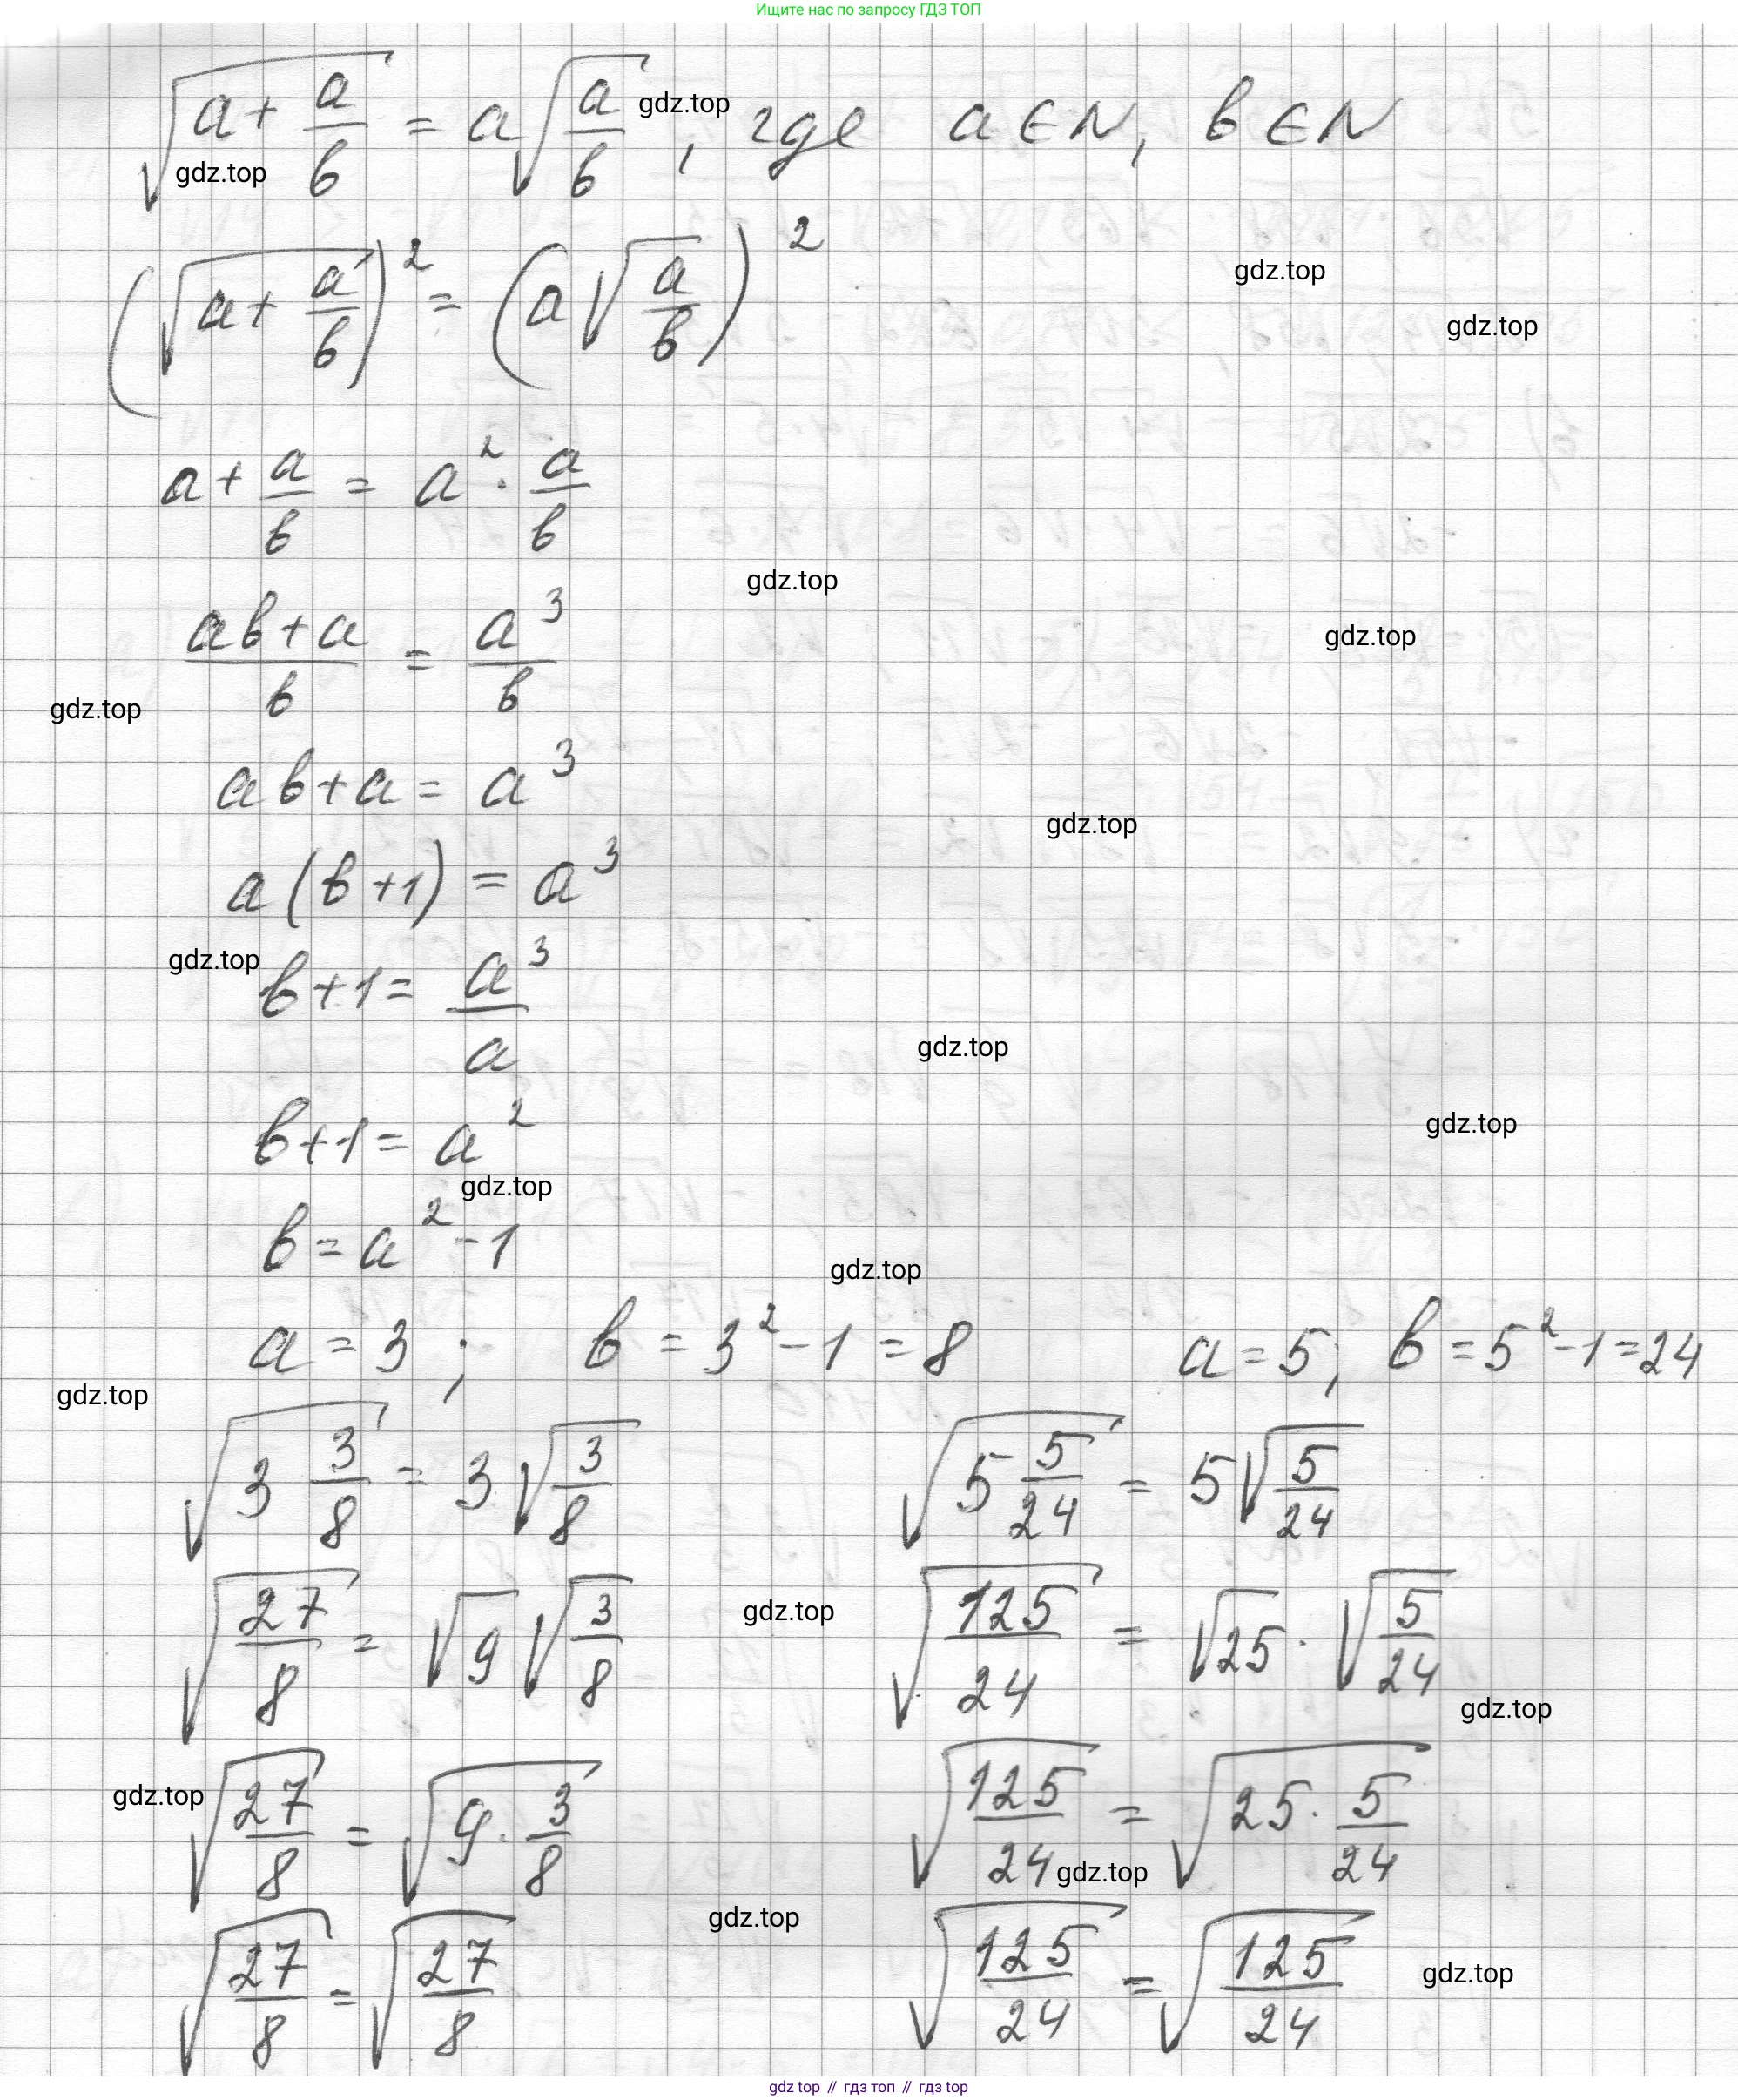 Ищите нас по запросу ГДЗ ТОП
√(a + a/b) = a√(a/b), где a ∈ N, b ∈ N
gdz.top
gdz.top
(√(a + a/b))² = (a√(a/b))²
gdz.top
gdz.top
a + a/b = a² · a/b
gdz.top
(ab+a)/b = a³/b
gdz.top
gdz.top
ab+a = a³
gdz.top
a(b+1) = a³
gdz.top
b+1 = a³/a
gdz.top
b+1 = a²
gdz.top
gdz.top
b = a² - 1
gdz.top
a = 3; b = 3² - 1 = 8 a = 5; b = 5² - 1 = 24
gdz.top
√(3 3/8) = 3√(3/8) √(5 5/24) = 5√(5/24)
√(27/8) = √9 √(3/8) √(125/24) = √25 · √(5/24)
gdz.top
gdz.top
√(27/8) = √(9 · 3/8) √(125/24) = √(25 · 5/24)
gdz.top
gdz.top
gdz.top
√(27/8) = √(27/8) √(125/24) = √(125/24)
gdz.top
gdz top // гдз топ // gdz top